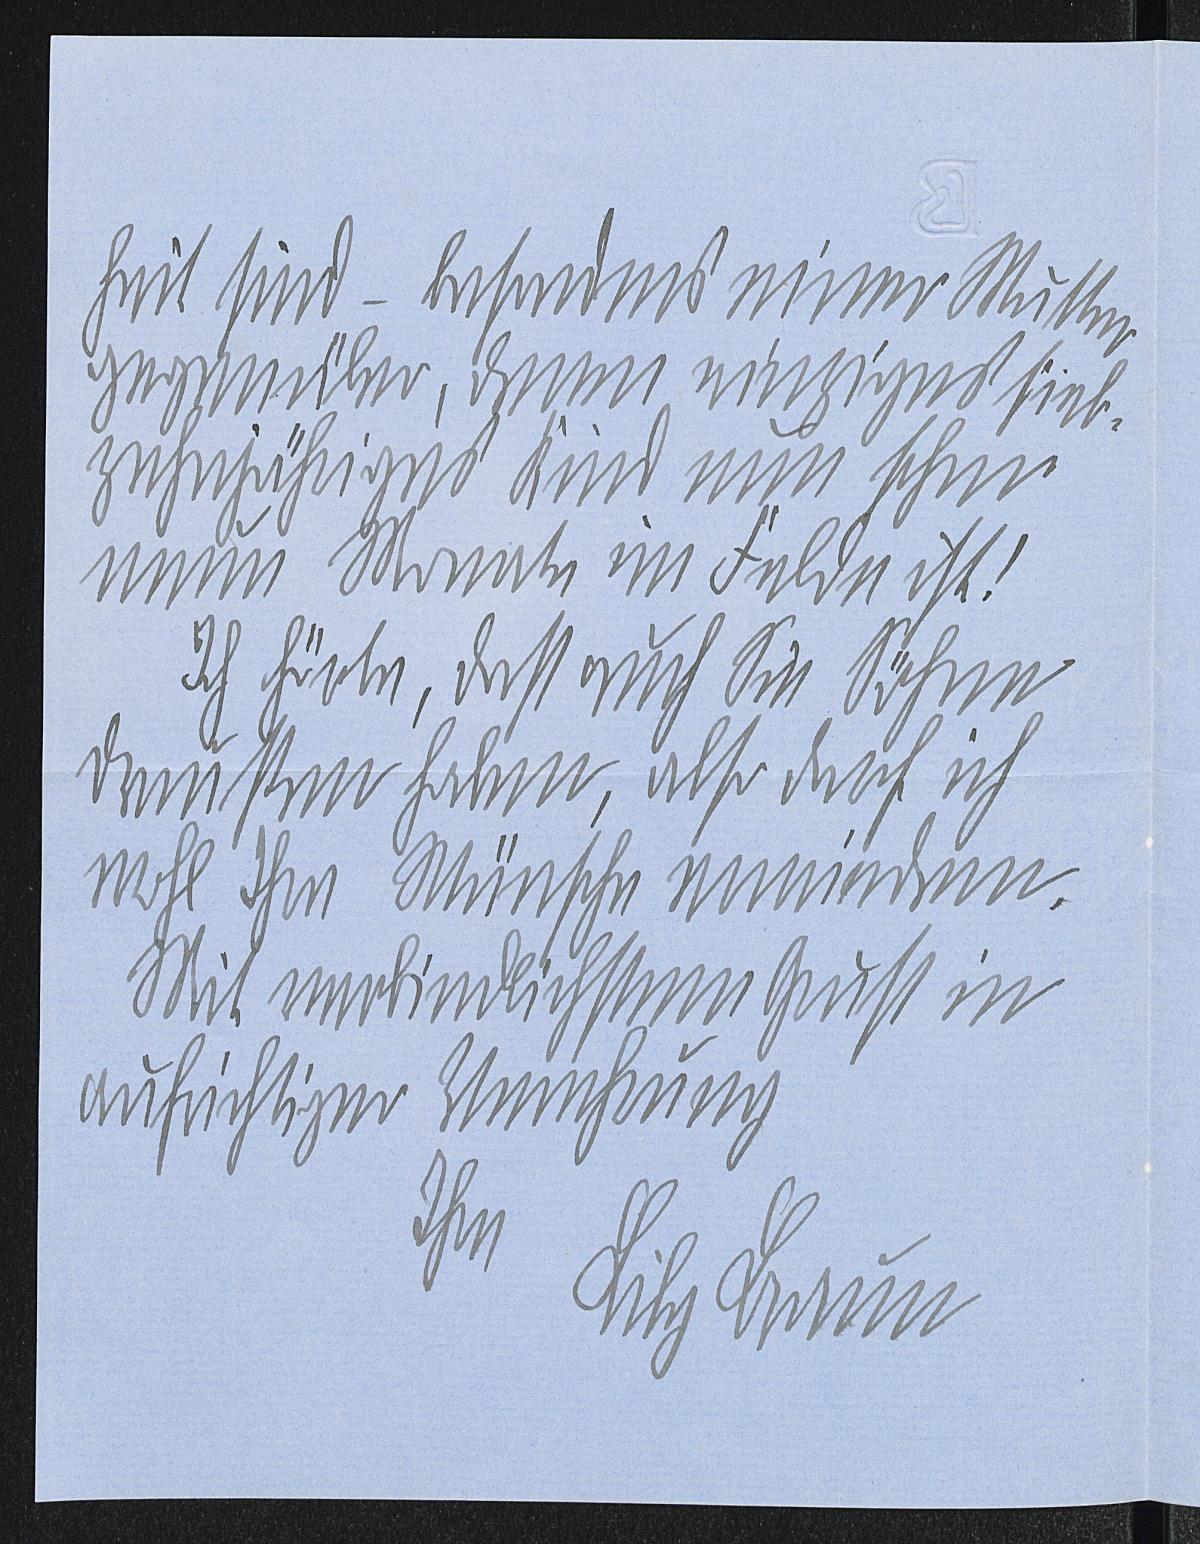 heit sind – besonders einer Mutter
gegenüber, deren einziges sieb-
zehnjähriges Kind nun schon
neun Monate im Felde ist!
Ich hörte, dass auch Sie Söhne
draussen haben, also darf ich
wohl Ihre Wünsche erwiedern.
Mit verbindlichstem Gruss in
aufrichtiger Verehrung
Ihre Lily Braun